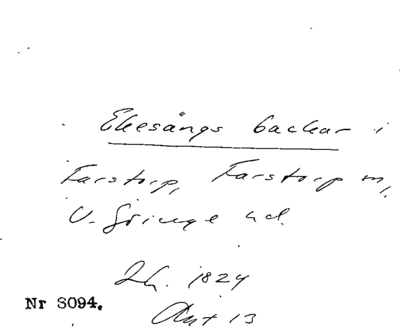 Ekesångs backar i
Farstorp, Farstorp m,
V. Göinge hd.
Lh. 1824
Akt 13
Nr 3094.